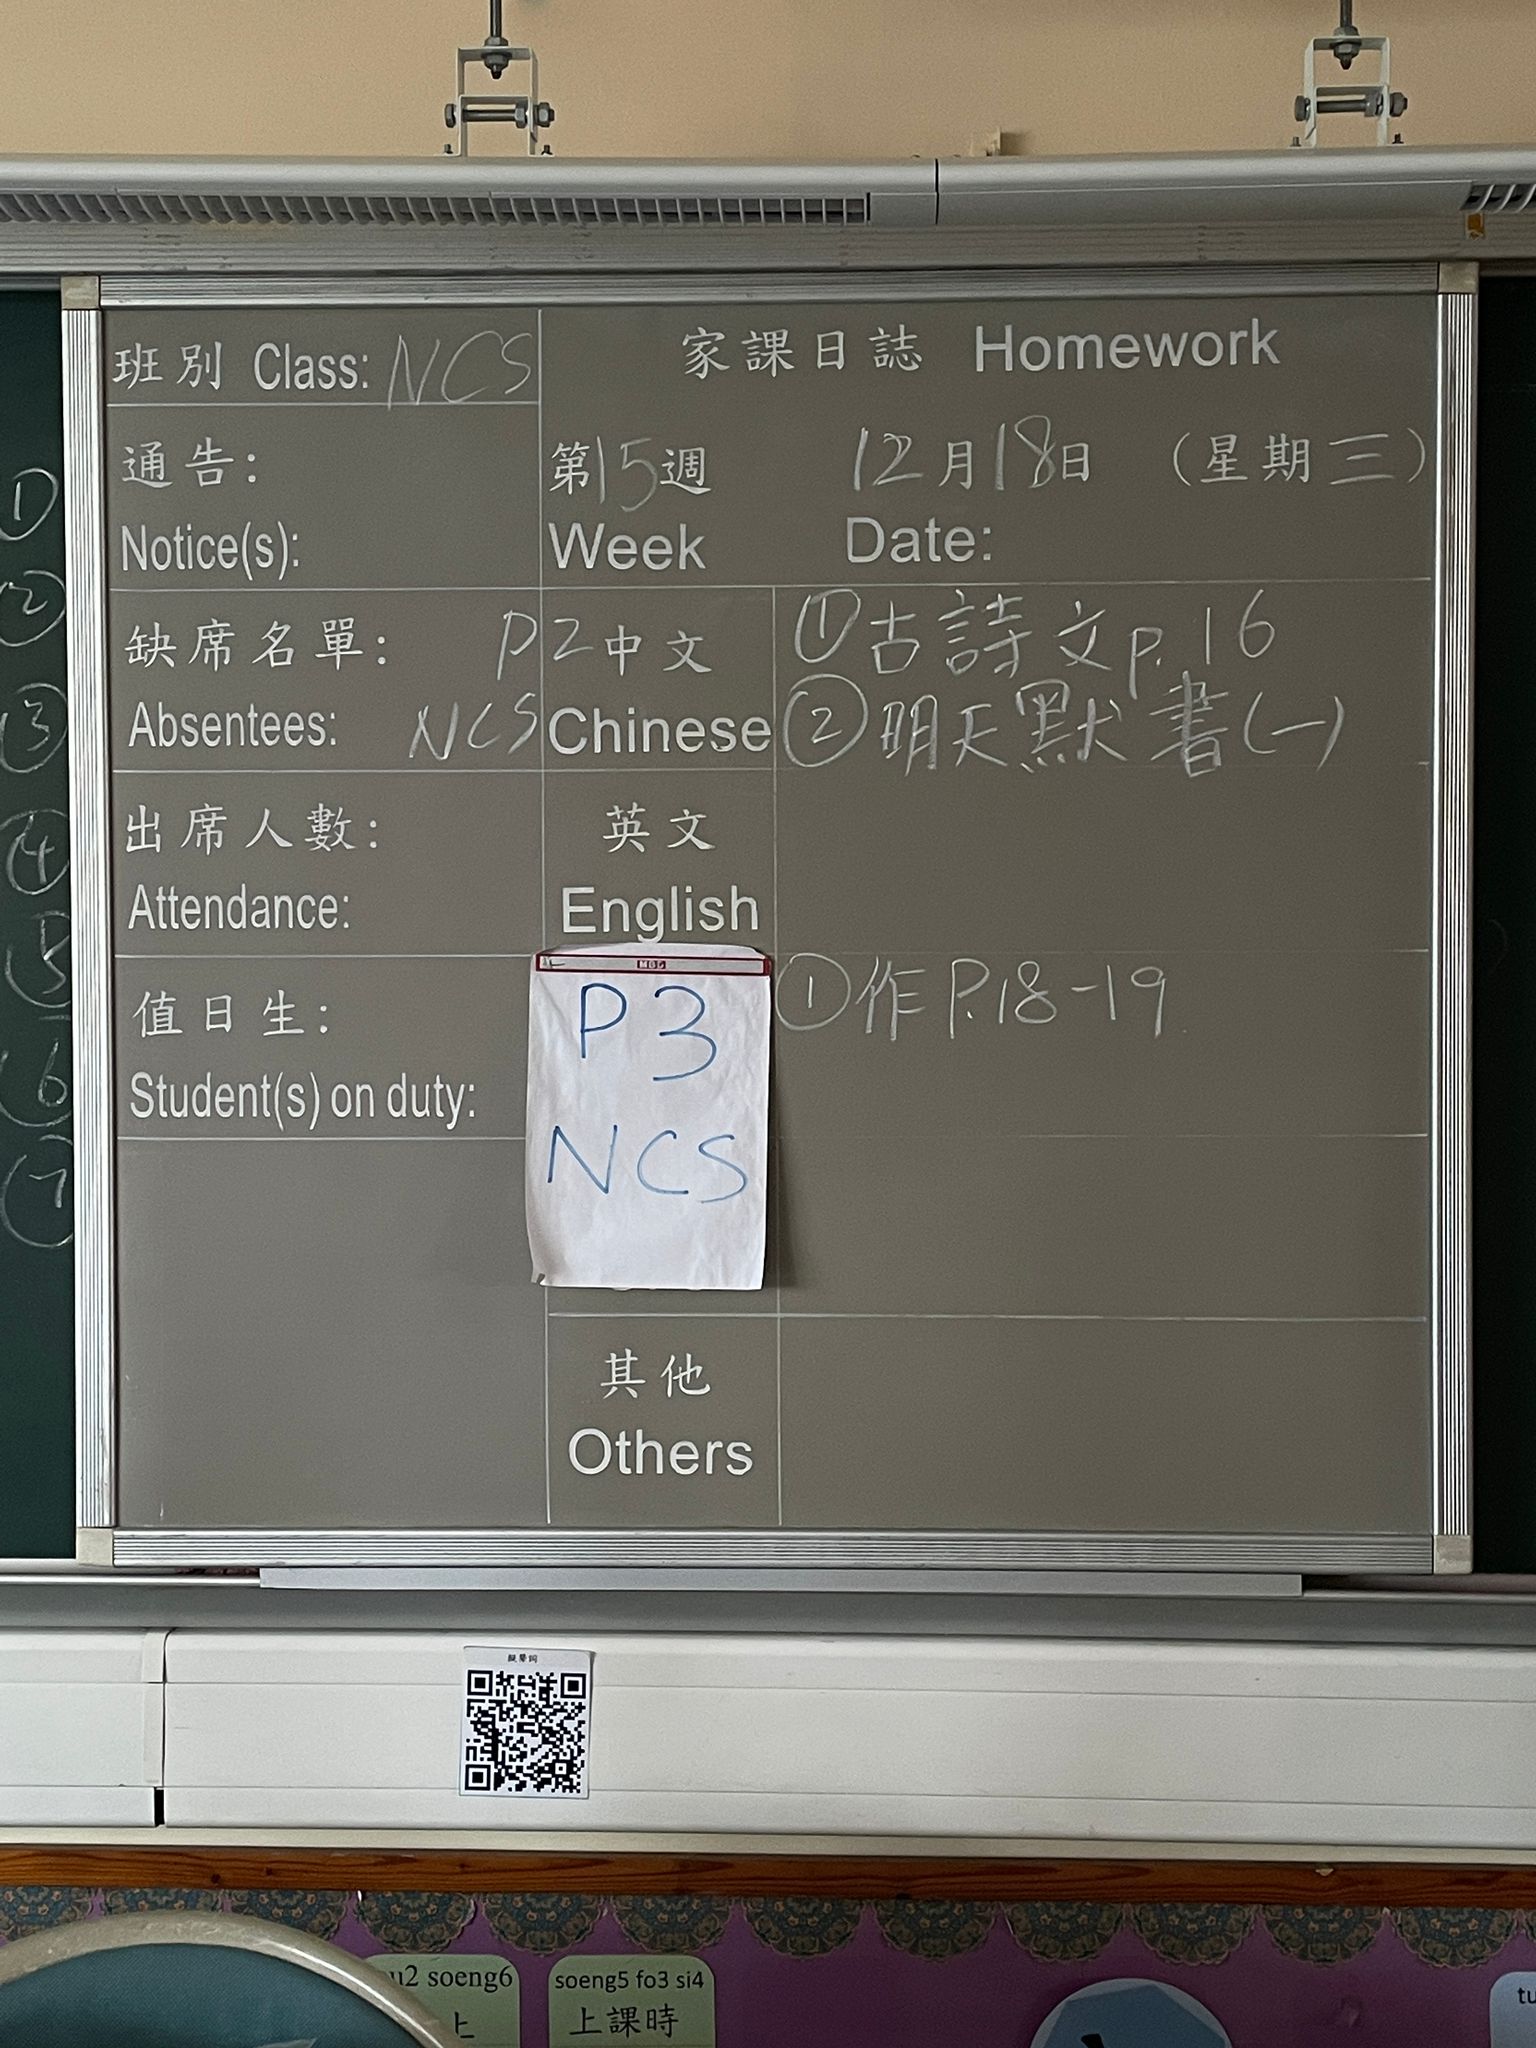 班別 Class: NCS
家課日誌 Homework
通告:
Notice(s):
第15週 12月18日 (星期三)
Week Date:
缺席名單:
Absentees:
P2
NCS
中文
Chinese
①古詩文p.16
②明天默書(一)
出席人數:
Attendance:
英文
English
值日生:
Student(s) on duty:
P3
NCS
①作P.18-19
其他
Others
①
②
③
④
⑤
⑥
⑦
擬聲詞
u2 soeng6
上
soeng5 fo3 si4
上課時
tu